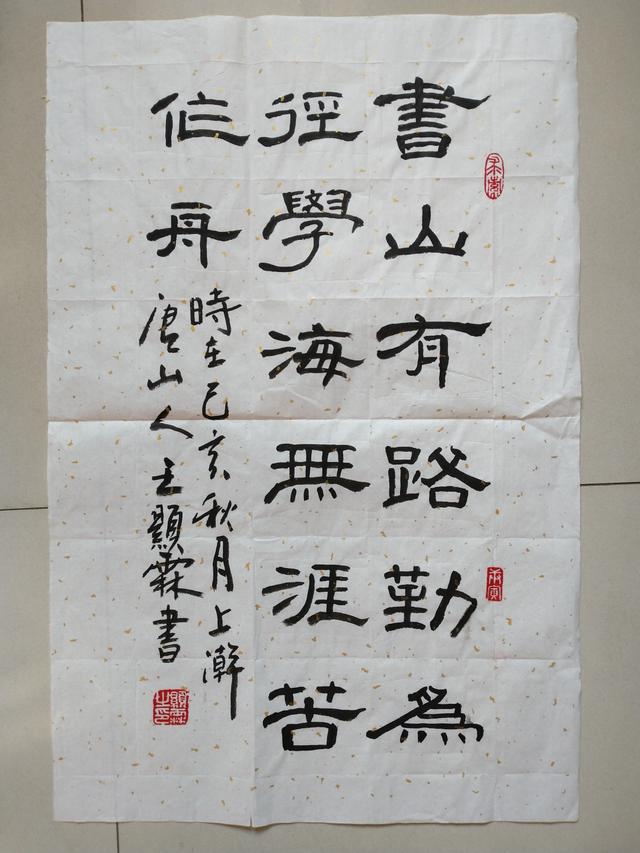 書山有路勤為
徑學海無涯苦
作舟
時在己亥秋月上澣
唐山人王顯霖書
丙寅
顯霖之印